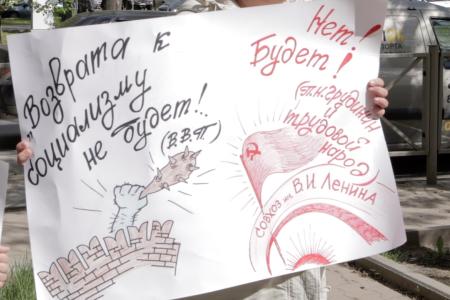 Возврата к
"социализму
не будет!..
(В.В.П)
Нет!
Будет!
(П.Н.Грудинин
и
трудовой
народ)
Совхоз им. В.И Ленина